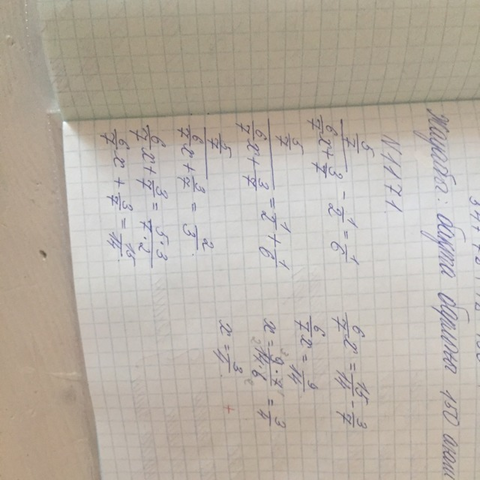 Жауабы: 150
N1171
(5/7)/(6/7 x + 3/7) - 1/2 = 1/6
(5/7)/(6/7 x + 3/7) = 1/2 + 1/6
(5/7)/(6/7 x + 3/7) = 2/3
6/7 x + 3/7 = (5·3)/(7·2)
6/7 x + 3/7 = 15/14
6/7 x = 15/14 - 3/7
6/7 x = 9/14
x = (9·7)/(14·6) = 3/4
x = 3/4